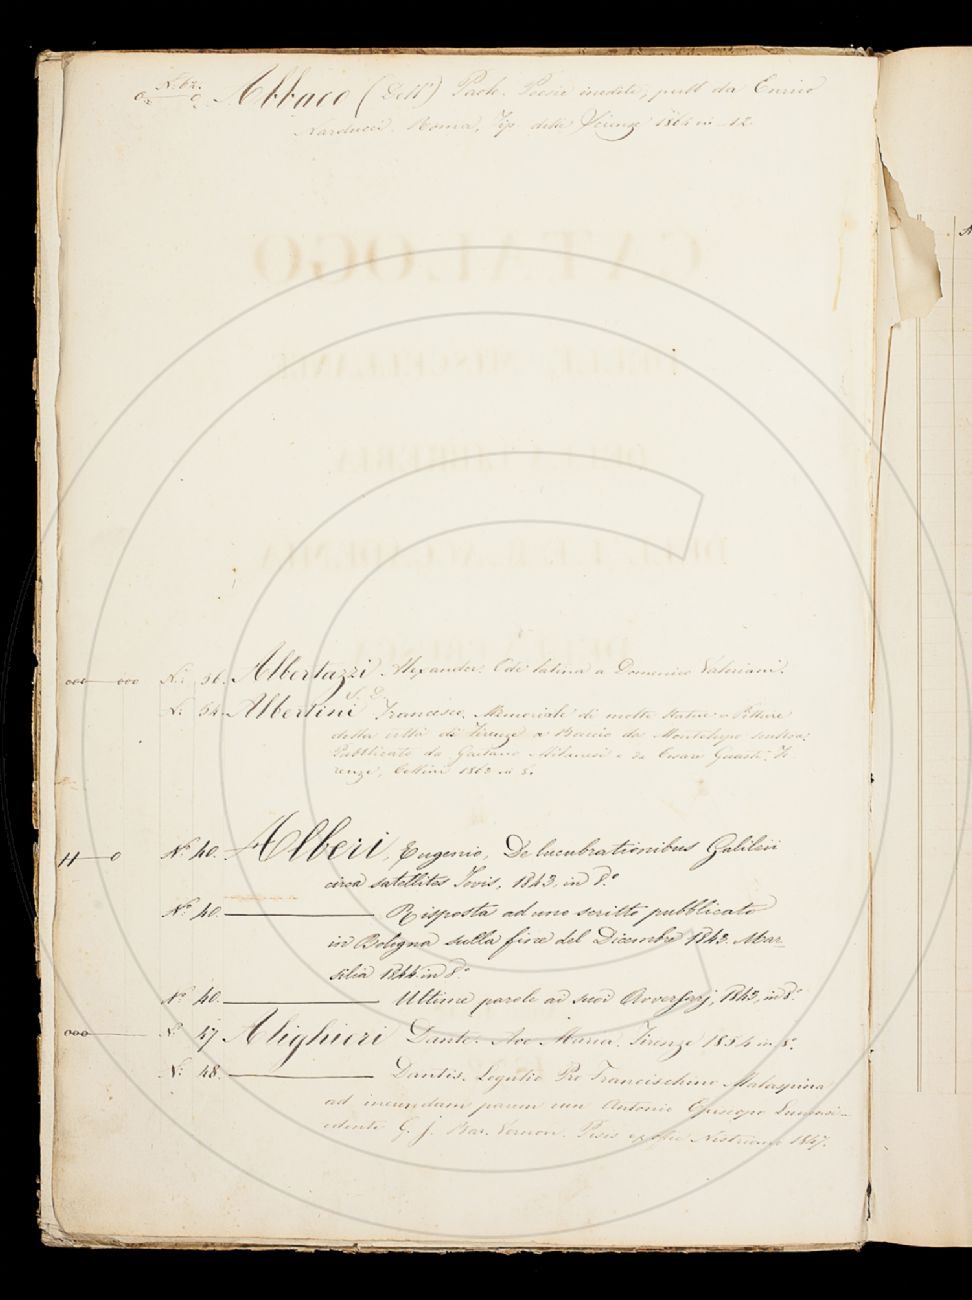 N. 62. Abbaco (Dell') Paolo. Poesie inedite, pubb. da Enrico
Narducci. Roma, Tip. delle Scienze 1864 in 12
CATALOGO
DELLE MISCELLANEE
DELLA LIBRERIA
DELL' I. E R. ACCADEMIA
DELLA CRUSCA
N. 56. Albertuzzi Alexander. Ode latina a Domenico Valeriani.
N. 64. Albertini Francesco, Memoriale di molte statue e Pitture
della città di Firenze a Baccio da Montelupo scultore;
Pubblicato da Gaetano Milanesi e da Cesare Guasti, Fi
renze, Cellini 1863 in 8°
N.° 40. Alberi, Eugenio, De lucubrationibus Galilei
circa satellites Jovis, 1843. in 8.°
N.° 40. Risposta ad uno scritto pubblicato
in Bologna sulla fine del Dicembre 1843. Mar-
silia 1844 in 8.°
N.° 40. Ultime parole ai suoi Avversarj, 1843, in 8.°
N.° 47 Alighieri Dante. Ave Maria. Firenze 1854 in 8.°
N.° 48. Dantis. Legatio Pro Francischino Malaspina
ad ineundam pacem cum Antonio Episcopo Lunensi
edente G. J. Bar. Vernon. Pisis ex offic Nistriana 1847.